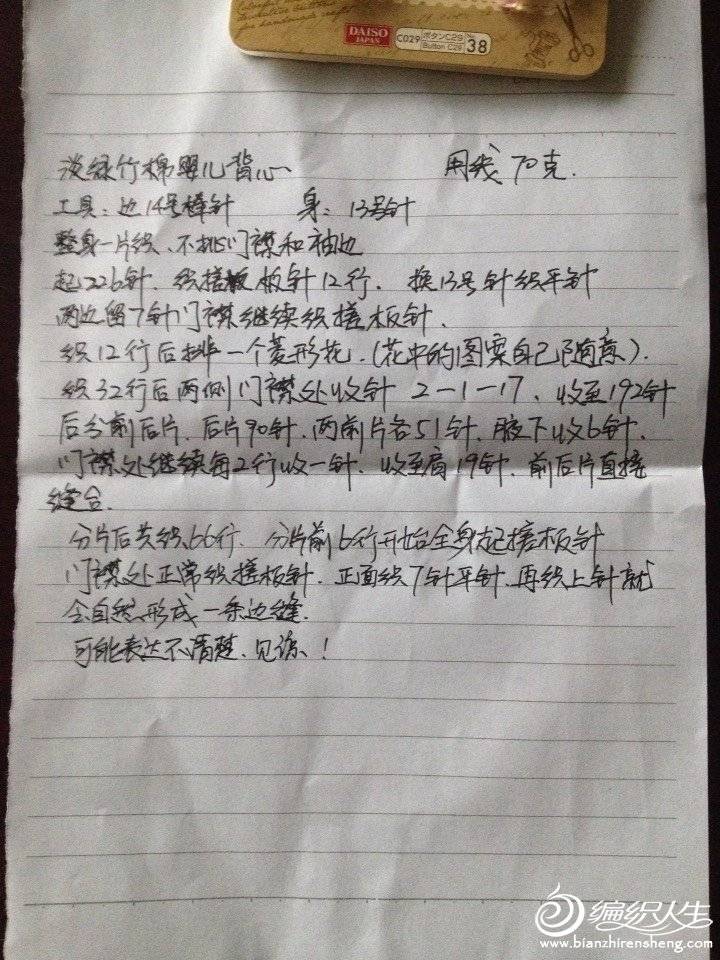 DAISO
JAPAN
C029
ボタンC29
Button C29
No.
38
淡绿竹棉婴儿背心 用线70克.
工具:边14号棒针 身:13号针
整身一片织、不挑门襟和袖边
起226针.织搓板针12行.换13号针织平针
两边留7针门襟继续织搓板针.
织12行后排一个菱形花.(花中的图案自己随意).
织32行后两侧门襟处收针 2-1-17、收至192针
后分前后片.后片90针.两前片各51针.腋下收6针.
门襟处继续每2行收一针.收至肩19针.前后片直接
缝合.
分片后共织66行.分片前6行开始全身起搓板针
门襟处正常织搓板针.正面织7针平针.再织上针就
会自然形成一条边缝.
可能表达不清楚、见谅、!
编织人生
www.bianzhirensheng.com